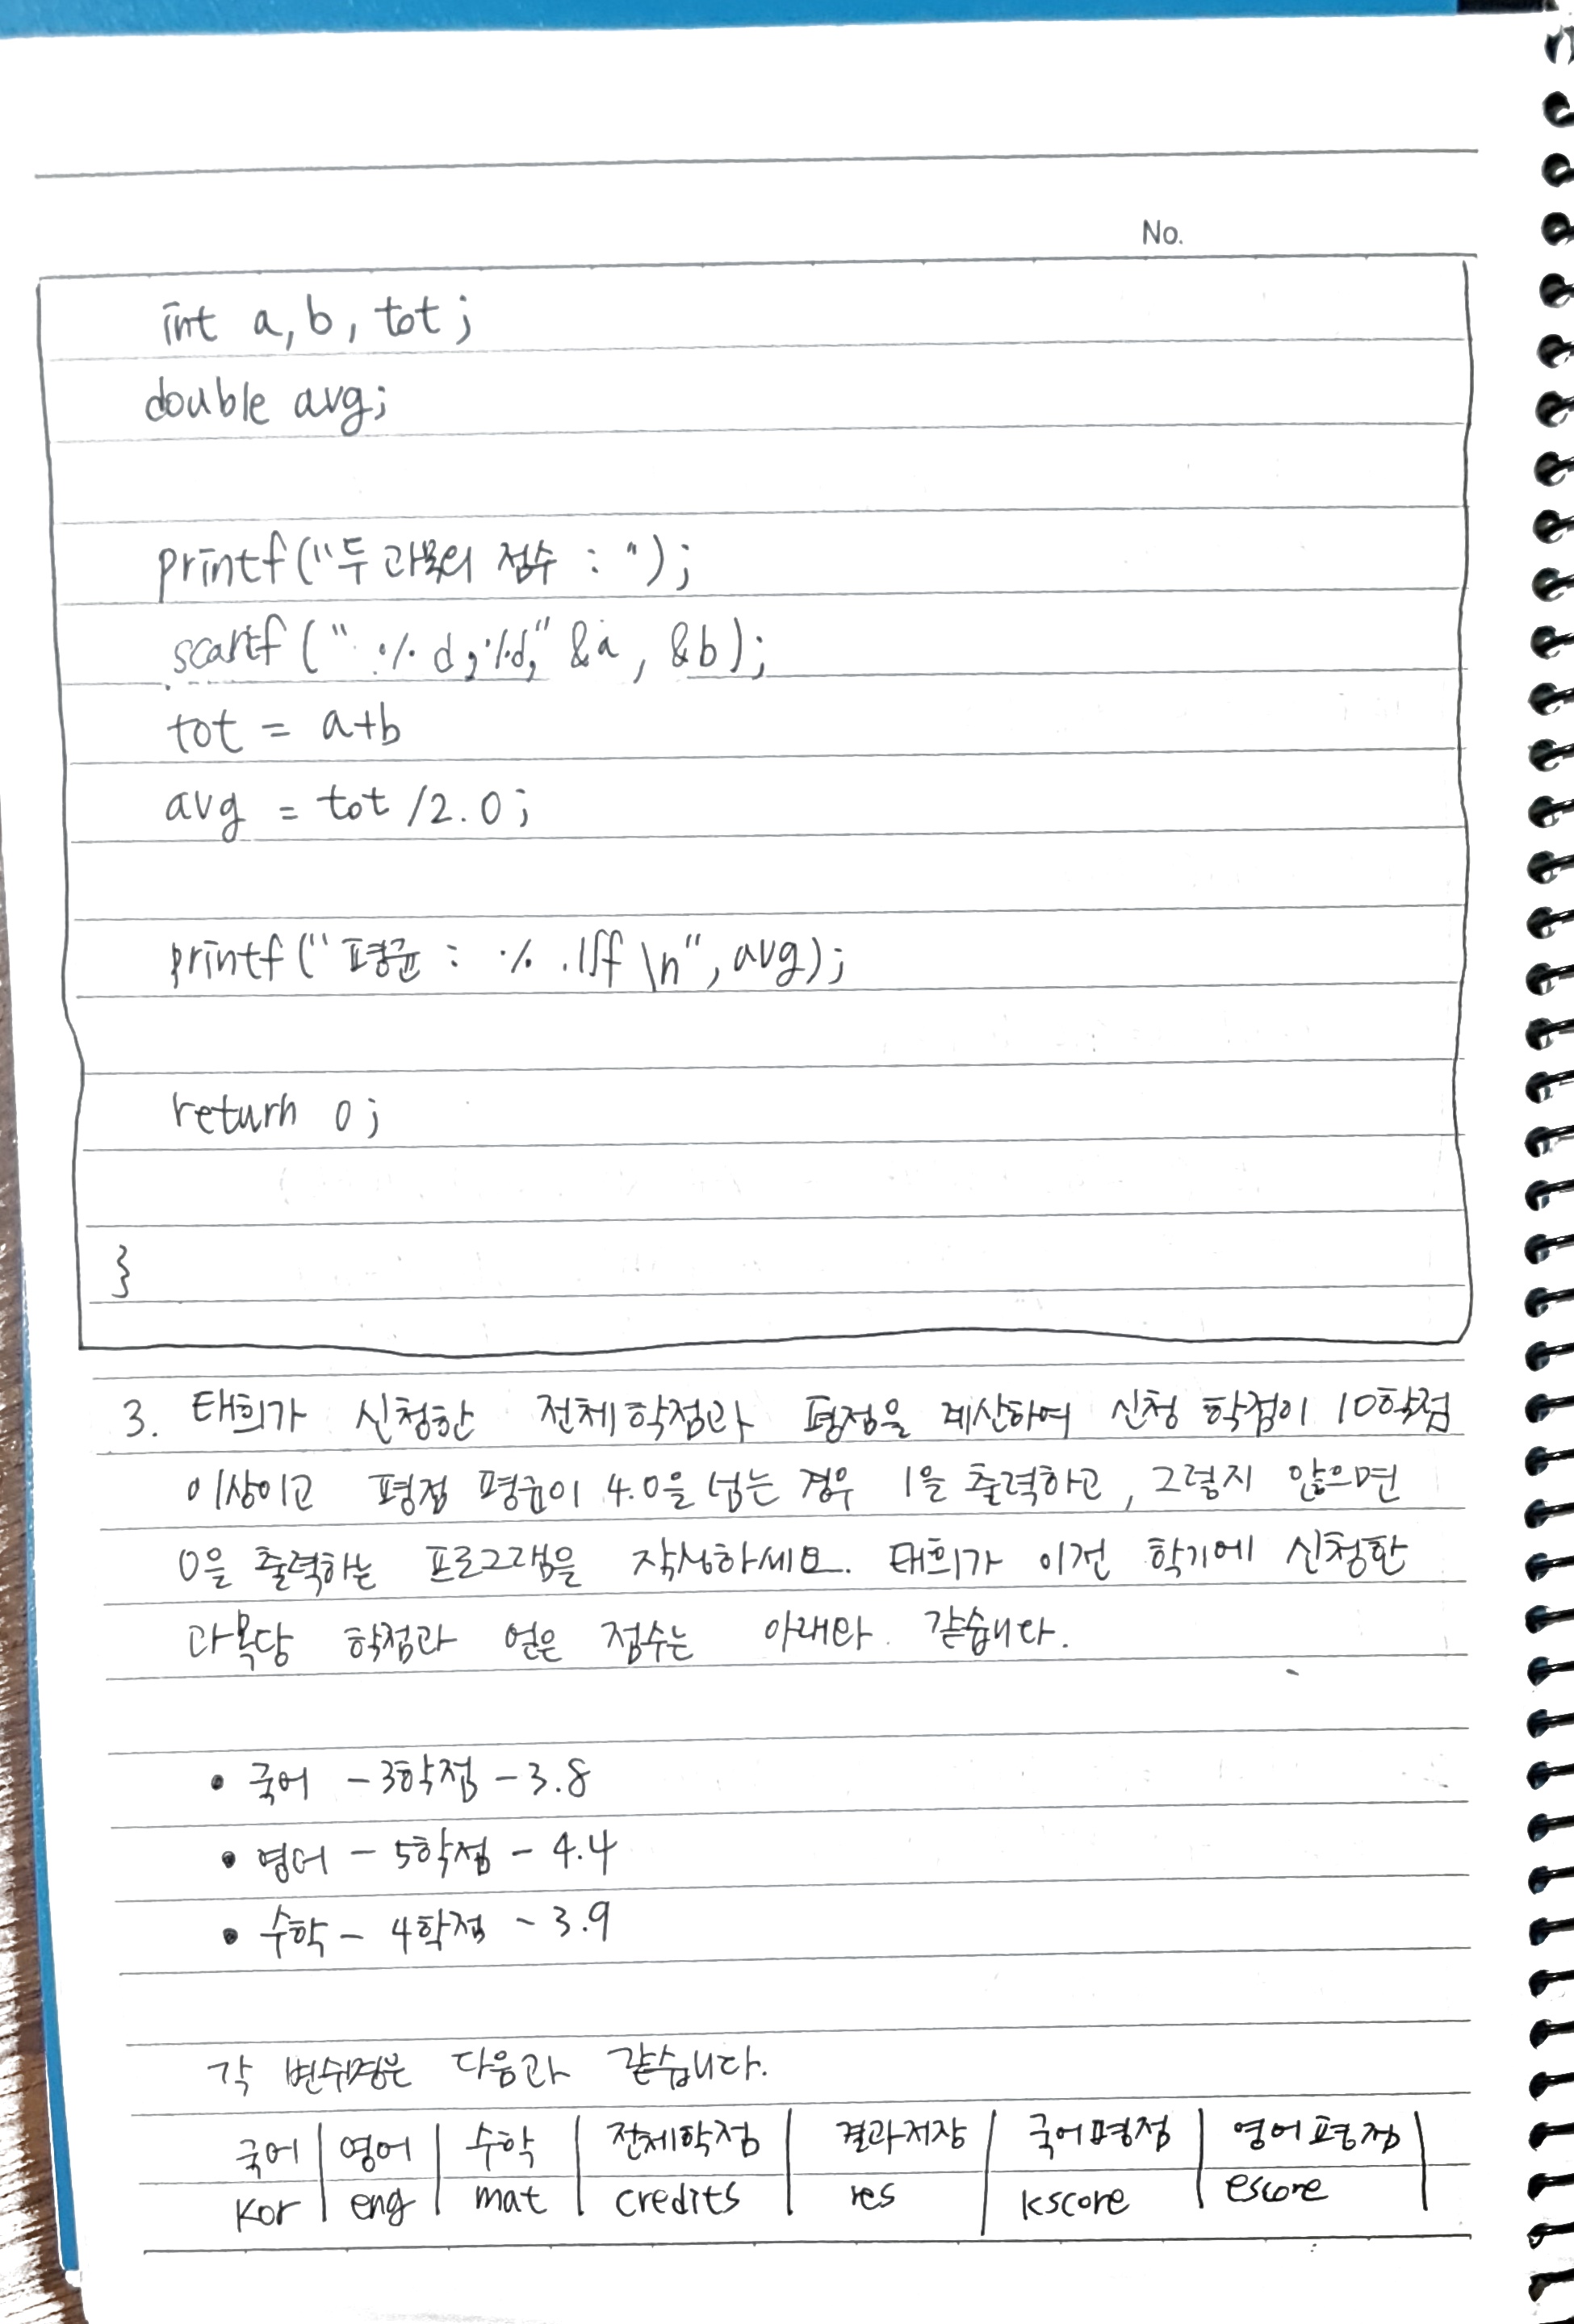 No.
int a, b, tot;
double avg;
printf("두 과목의 점수 : ");
scanf(" %d,%d," &a, &b);
tot = a+b
avg = tot /2.0;
printf("평균 : %.1lf \n", avg);
return 0;
}
3. 태희가 신청한 전체학점과 평점을 계산하여 신청 학점이 10학점
이상이고 평점 평균이 4.0을 넘는 경우 1을 출력하고, 그렇지 않으면
0을 출력하는 프로그램을 작성하세요. 태희가 이전 학기에 신청한
과목당 학점과 얻은 점수는 아래와 같습니다.
• 국어 - 3학점 - 3.8
• 영어 - 5학점 - 4.4
• 수학 - 4학점 - 3.9
각 변수명은 다음과 같습니다.
국어 | 영어 | 수학 | 전체학점 | 결과저장 | 국어평점 | 영어평점 |
kor | eng | mat | credits | res | kscore | escore |